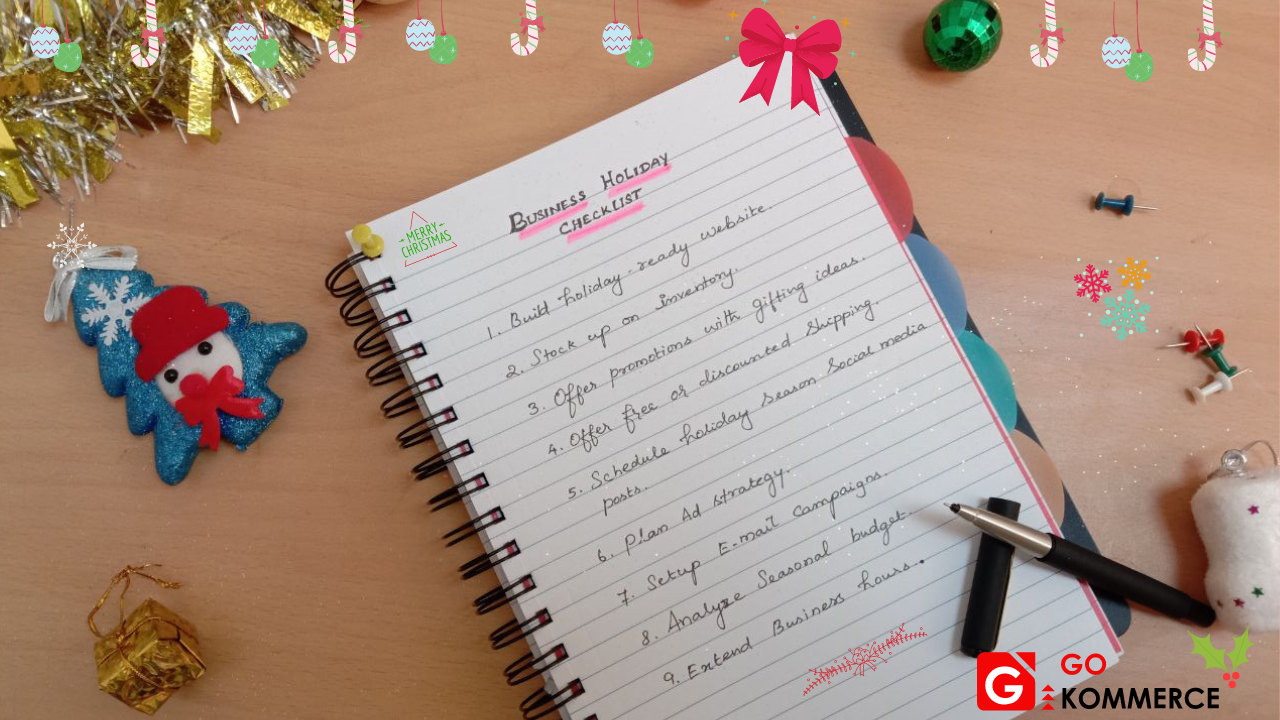 MERRY
CHRISTMAS
BUSINESS HOLIDAY
CHECKLIST
1. Build holiday-ready website.
2. Stock up on inventory.
3. Offer promotions with gifting ideas.
4. Offer free or discounted Shipping.
5. Schedule holiday season Social media
posts.
6. Plan Ad strategy.
7. Setup E-mail Campaigns.
8. Analyze Seasonal budget.
9. Extend Business hours.
G
GO
KOMMERCE